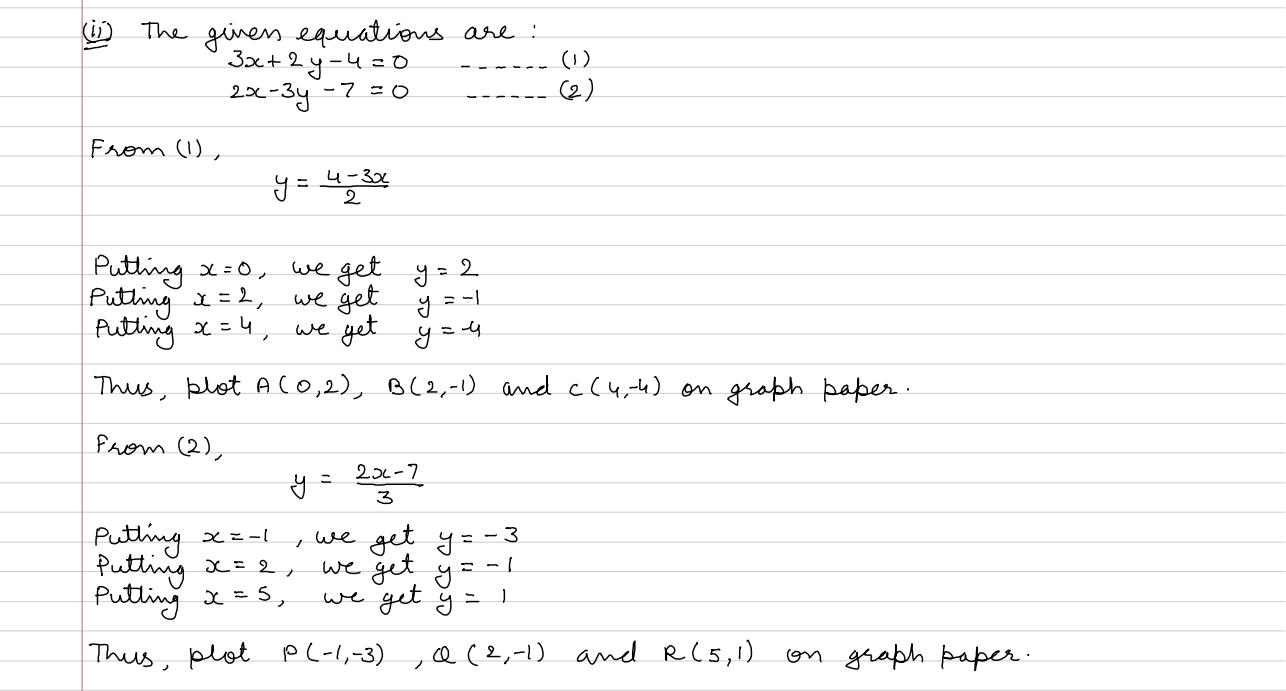 (ii) The given equations are :
3x+2y-4=0 ------ (1)
2x-3y-7=0 ------ (2)
From (1),
y = (4-3x)/2
Putting x=0, we get y=2
Putting x=2, we get y=-1
Putting x=4, we get y=-4
Thus, plot A(0,2), B(2,-1) and C(4,-4) on graph paper.
From (2),
y = (2x-7)/3
Putting x=-1, we get y=-3
Putting x=2, we get y=-1
Putting x=5, we get y=1
Thus, plot P(-1,-3), Q(2,-1) and R(5,1) on graph paper.